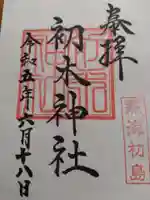 奉拝
初木神社
令和五年八月十八日
初島